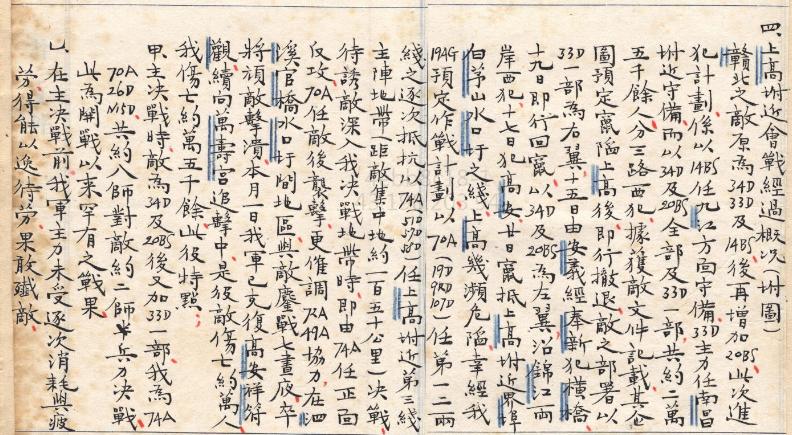 四、上高附近會戰經過概況(附圖)
贛北之敵原為34D33D及14BS後再增加20BS此次進
犯計劃係以14BS任九江方面守備33D主力任南昌
附近守備而以34D及20BS全部及33D一部共約二萬
五千餘人分三路西犯據獲敵文件記載其企
圖預定竄陷上高後即行撤退敵之部署以
33D一部為右翼十五日由安義經奉新犯橫橋
十九日即行回竄以34D及20BS為左翼沿錦江兩
岸西犯十七日犯高安廿日竄抵上高附近界埠
白茅山水口圩之綫上高幾瀕危陷幸經我
19AG預定作戰計劃以70A(19D9RD107D)任第一二兩
綫之逐次抵抗以74A(51D57D58D)任上高附近第三綫
主陣地帶(距敵集中地約一百五十公里)決戰
待誘敵深入我決戰地帶時即由74A任正面
反攻70A任敵後襲擊更催調72A49A協力在泗
溪官橋水口圩間地區與敵鏖戰七晝夜卒
將頑敵擊潰本月一日我軍已克復高安祥符
觀續向萬壽宮追擊中是役敵傷亡約萬人
我傷亡約萬五千餘此役特點
甲、主決戰時敵為34D及20BS後又加33D一部我為74A
70A26DN15D共約八師對敵約二師半兵力決戰
此為開戰以來罕有之戰果
乙、在主決戰前我軍主力未受逐次消耗與疲
勞得能以逸待勞果敢殲敵